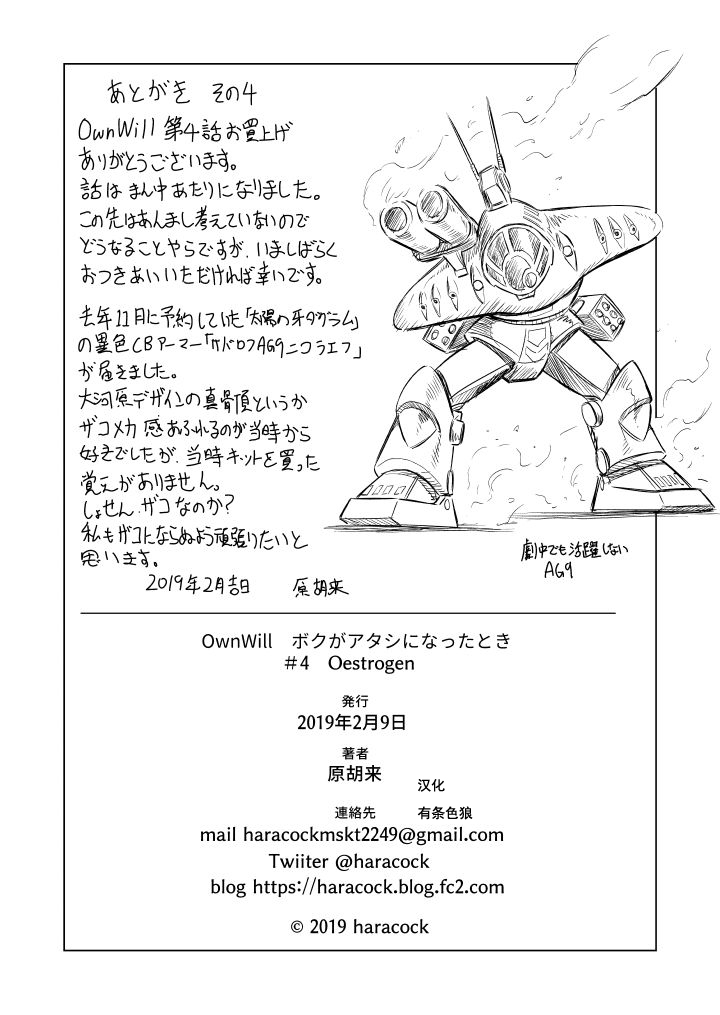 あとがき その4
OwnWill 第4話お買上げ
ありがとうございます。
話はまん中あたりになりました。
この先はあんまし考えていないので
どうなることやらですが、いましばらく
おつきあいいただければ幸いです。
去年11月に予約していた「太陽の牙ダグラム」
の異色CBアーマー「ケドロフAG9ニコラエフ」
が届きました。
大河原デザインの真骨頂というか
ザコメカ感あふれるのが当時から
好きでしたが、当時キットを買った
覚えがありません。
しょせん、ザコなのか?
私もザコにならぬよう頑張りたいと
思います。
2019年2月吉日 原胡来
劇中でも活躍しない
AG9
OwnWill ボクがアタシになったとき
#4 Oestrogen
発行
2019年2月9日
著者
原胡来
汉化
連絡先 有条色狼
mail haracockmskt2249@gmail.com
Twiiter @haracock
blog https://haracock.blog.fc2.com
© 2019 haracock